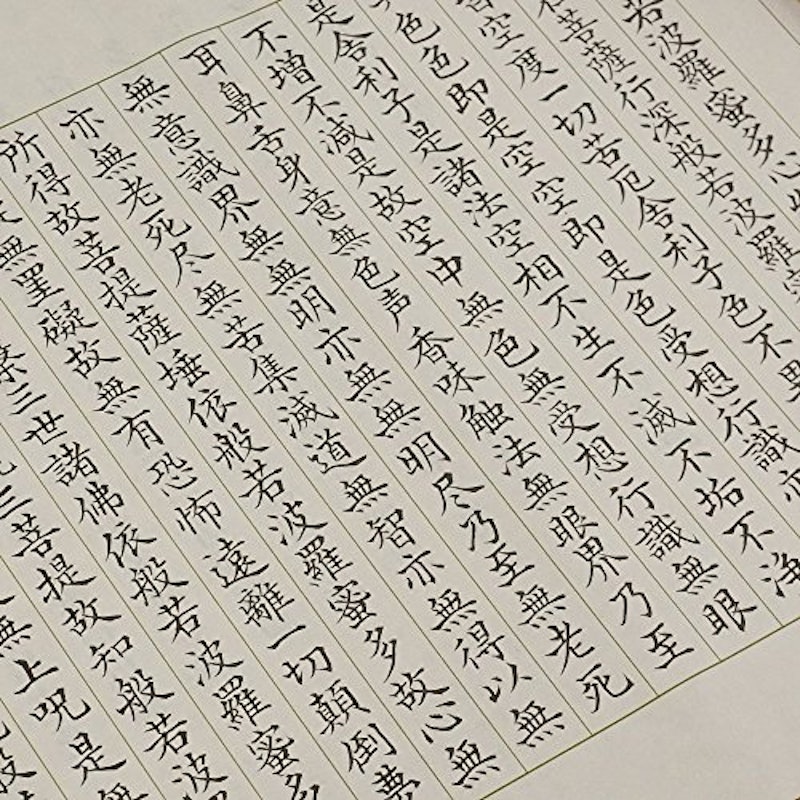 若波羅蜜多心
菩薩行深般若波羅蜜
空度一切苦厄舍利子色不異
色色即是空空即是色受想行識亦
是舍利子是諸法空相不生不滅不垢不浄
不増不減是故空中無色無受想行識無眼
耳鼻舌身意無色声香味触法無眼界乃至
無意識界無無明亦無無明尽乃至無老死
亦無老死尽無苦集滅道無智亦無得以無
所得故菩提薩埵依般若波羅蜜多故心無
無罣礙故無有恐怖遠離一切顛倒夢
槃三世諸佛依般若波羅蜜多
三菩提故知般若波
無上呪是無